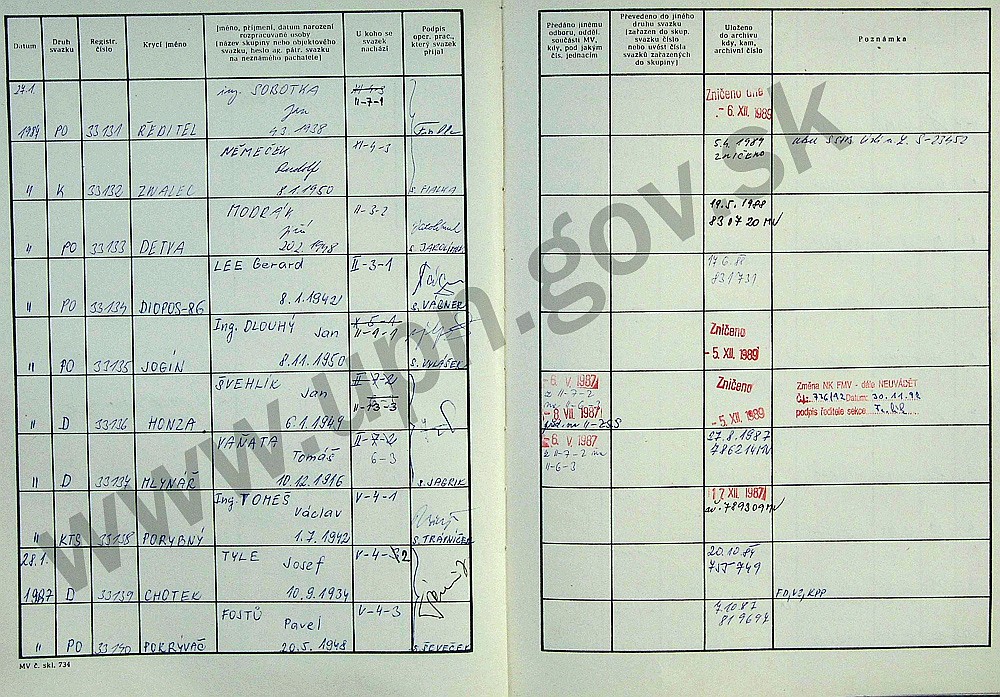 Datum
Druh svazku
Registr. číslo
Krycí jméno
Jméno, příjmení, datum narození
rozpracované osoby
(název skupiny nebo objektového
svazku, heslo ag. pátr. svazku
na neznámého pachatele)
U koho se
svazek
nachází
Podpis
oper. prac.,
který svazek
přijal
Předáno jinému
odboru, odděl.
součásti MV,
kdy, pod jakým
čís. jednacím
Převedeno do jiného
druhu svazku
(zařazen do skup.
svazku číslo
nebo uvést čísla
svazků zařazených
do skupiny)
Uloženo
do archivu
kdy, kam,
archivní číslo
Poznámka
27.1. ing. SOBOTKA VI-4-3
Jan II-7-1
PO 33131 ŘEDITEL 4.3. 1938
Zničeno dne
- 6. XII. 1989
NĚMEČEK XI-4-3
Rudolf
" K 33132 ZNALEC 8.1.1950 S. FIALKA
5.4. 1989
ZNIČENO
MODRÁK II-3-2
Jiří
" PO 33133 DETVA 20.2. 1948
19.5. 1988
830720 MV
LEE Gerard II-3-1
" PO 33134 DIOPOS-86 8.1.1942 S. VÁGNER
831731
Ing. DLOUHÝ Jan II-1-1
" PO 33135 JOGÍN 8.11.1950
Zničeno
- 5. XII. 1989
ŠVEHLÍK II-7-2
Jan II-13-3
" D 33136 HONZA 6.1.1949
- 6. V. 1987
z II-7-2
- 8. VII. 1987
Zničeno
- 5. XII. 1989
Změna NK FMV - dále NEUVÁDĚT
Čj.: 776/92 Datum: 30.11.92
podpis ředitele sekce
VAŇATA II-7-2
Tomáš 6-3
" D 33137 MLYNÁŘ 10.12.1916 S. JAGRIK
- 6. V. 1987
z II-7-2 na
II-6-3
27.8.1987
786214 MV
Ing. TOMEŠ V-4-1
Václav
" KTS 33138 PORYBNÝ 1.7. 1942 S. TRÁVNÍČEK
17. XII. 1987
789309 MV
28.1. TYLE V-4-2
Josef
1987 D 33139 CHOTEK 10.9.1934
20.10.87
755749
FOJTŮ V-4-3
Pavel
" PO 33140 POKRÝVAČ 20.5.1948 S. ŠEVEČEK
7.10.87
819697
MV č. skl. 734
www.upn.gov.sk